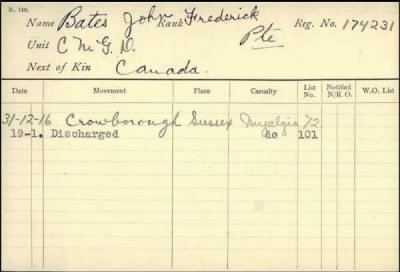 R. 149.
Name Bates John Frederick Rank Pte Reg. No. 174231
Unit C M G D.
Next of Kin Canada.
Date Movement Place Casualty List No. Notified N/K O. W.O. List
31-12-16 Crowborough Sussex Myalgia 72
19-1. Discharged do 101